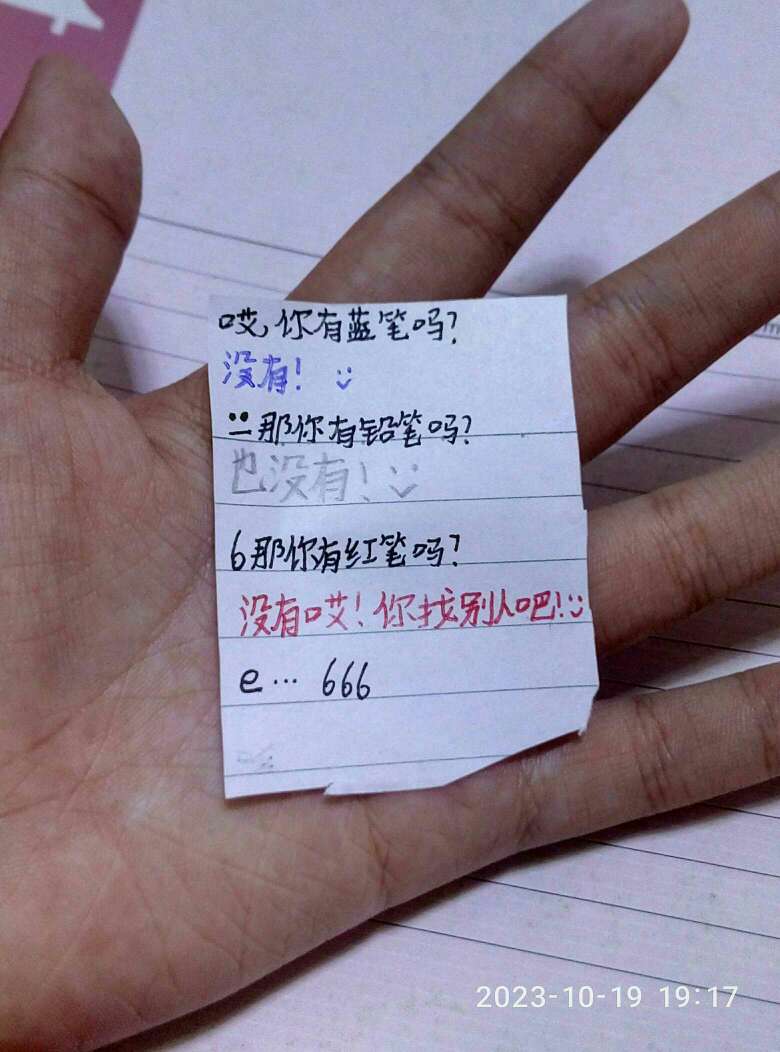 哎,你有蓝笔吗?
没有!
那你有铅笔吗?
也没有!
6那你有红笔吗?
没有哎!你找别人吧!
e… 666
2023-10-19 19:17